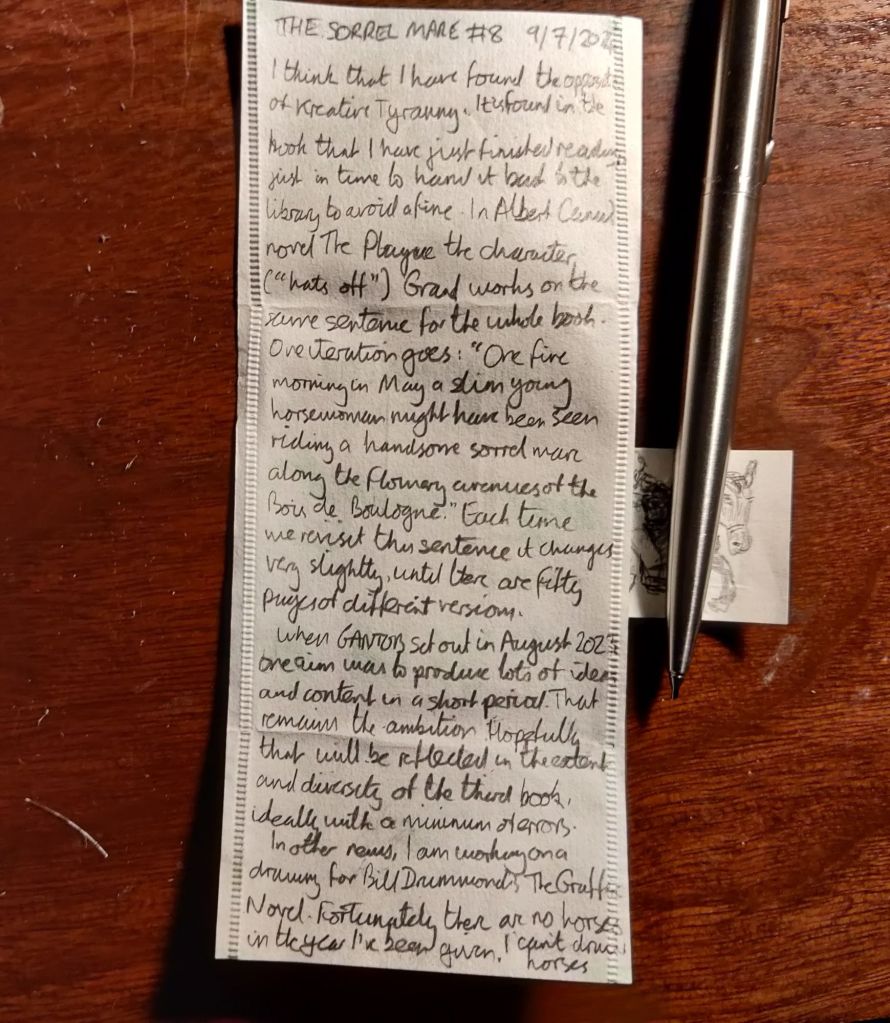 THE SORREL MARE #8 9/7/202
I think that I have found the opposit
of Kreative Tyranny. It is found in the
book that I have just finished reading
just in time to hand it back to the
library to avoid a fine. In Albert Camus'
novel The Plague the character
("hats off") Grand works on the
same sentence for the whole book.
One iteration goes: "One fine
morning in May a slim young
horsewoman might have been seen
riding a handsome sorrel mare
along the flowery avenues of the
Bois de Boulogne." Each time
we revisit this sentence it changes
very slightly, until there are fifty
pages of different versions.
When GANTOB set out in August 202
one aim was to produce lots of ideas
and content in a short period. That
remains the ambition. Hopefully
that will be reflected in the extent
and diversity of the third book,
ideally with a minimum of errors.
In other news, I am working on a
drawing for Bill Drummond's The Graffic
Novel. Fortunately there are no horses
in the year I've been given. I can't draw
horses